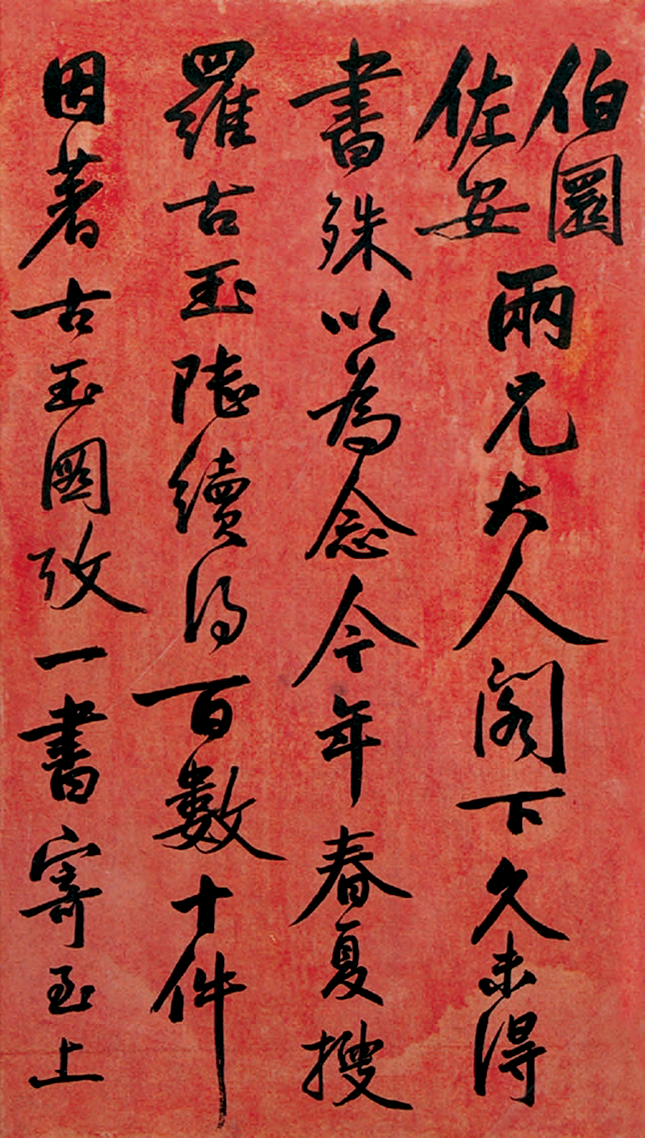 伯圜
佐安
兩兄大人閣下久未得
書殊以為念今年春夏搜
羅古玉陸續得百數十件
因著古玉圖攷一書寄至上